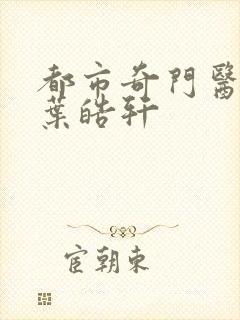 都市奇門醫
葉皓軒
宦朝東